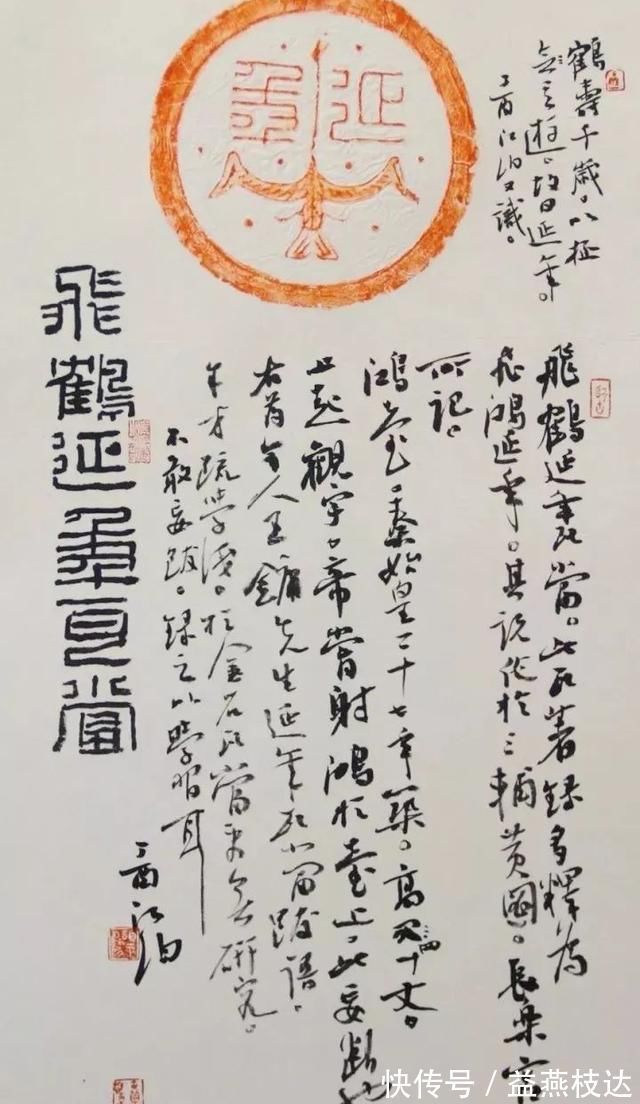 延年
鶴壽千歲。以極
遊。故曰延年。
丁酉江泊又識。
飛鶴延年瓦當
飛鶴延年瓦當。此瓦著錄多釋為
飛鴻延年。其說於三輔黃圖。長樂宮
所記。
鴻臺。秦始皇二十七年築。高四十丈。
上起觀宇。帝嘗射鴻於臺上。此妄斷也
右為今人王鏞先生延年瓦當跋語。
才疏學淺。於金石瓦當素無研究。
不敢妄跋。錄之以學習耳
丁酉江泊
快传号/益燕枝达